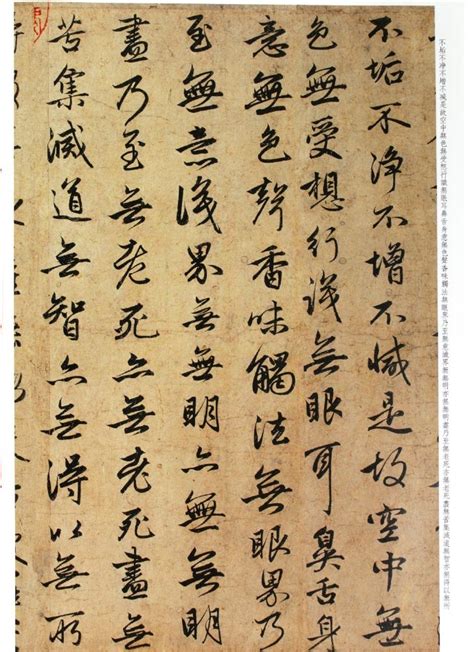 不垢不净不增不減是故空中無色無受想行識無眼耳鼻舌身意無色聲香味觸法無眼界乃至無意識界無無明亦無無明盡乃至無老死亦無老死盡無苦集滅道無智亦無得以無所
不垢不净不增不減是故空中無
色無受想行識無眼耳鼻舌身
意無色聲香味觸法無眼界乃
至無意識界無無明亦無無明
盡乃至無老死亦無老死盡無
苦集滅道無智亦無得以無所